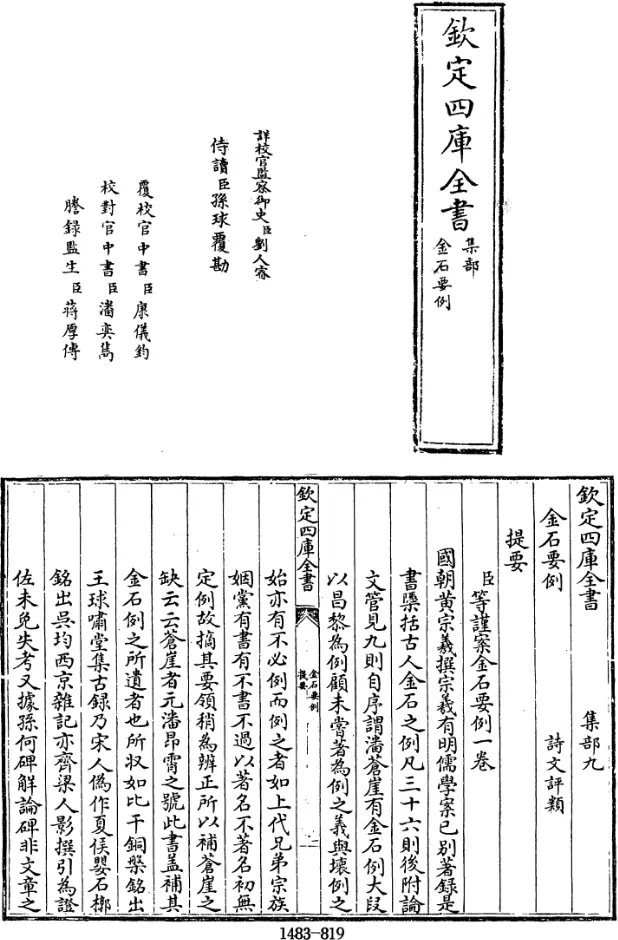 欽定四庫全書
集部
金石要例
詳校官監察御史臣劉人睿
侍讀臣孫球覆勘
覆校官中書臣康儀鈞
校對官中書臣潘奕雋
謄錄監生臣蔣厚傳
欽定四庫全書 集部九
金石要例 詩文評類
提要
臣等謹案金石要例一卷
國朝黃宗羲撰宗羲有明儒學案已別著錄是
書檃括古人金石之例凡三十六則後附論
文管見九則自序謂潘蒼崖有金石例大段
以昌黎為例顧未嘗著為例之義與壞例之
欽定四庫全書
金石要例
提要
一
始亦有不必例而例之者如上代兄弟宗族
姻黨有書有不書不過以著名不著名初無
定例故摘其要領稍為辨正所以補蒼崖之
缺云云蒼崖者元潘昂霄之號此書蓋補其
金石例之所遺者也所収如比干銅槃銘出
王球嘯堂集古錄乃宋人偽作夏侯嬰石槨
銘出吳均西京雜記亦齊梁人影撰引為證
佐未免失考又據孫何碑解論碑非文章之
1483-819